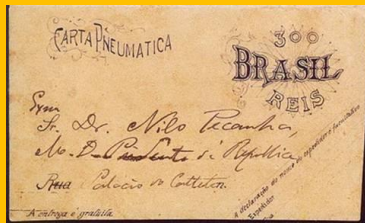 CARTA PNEUMATICA
300
BRASIL
REIS
Exm
Sr. Dr. Nilo Pecanha,
M. D. Presidente da Republica
Rua Palacio do Cattete.
A entrega é gratuita
A declaração do nome do expeditor é facultativa
Expeditor